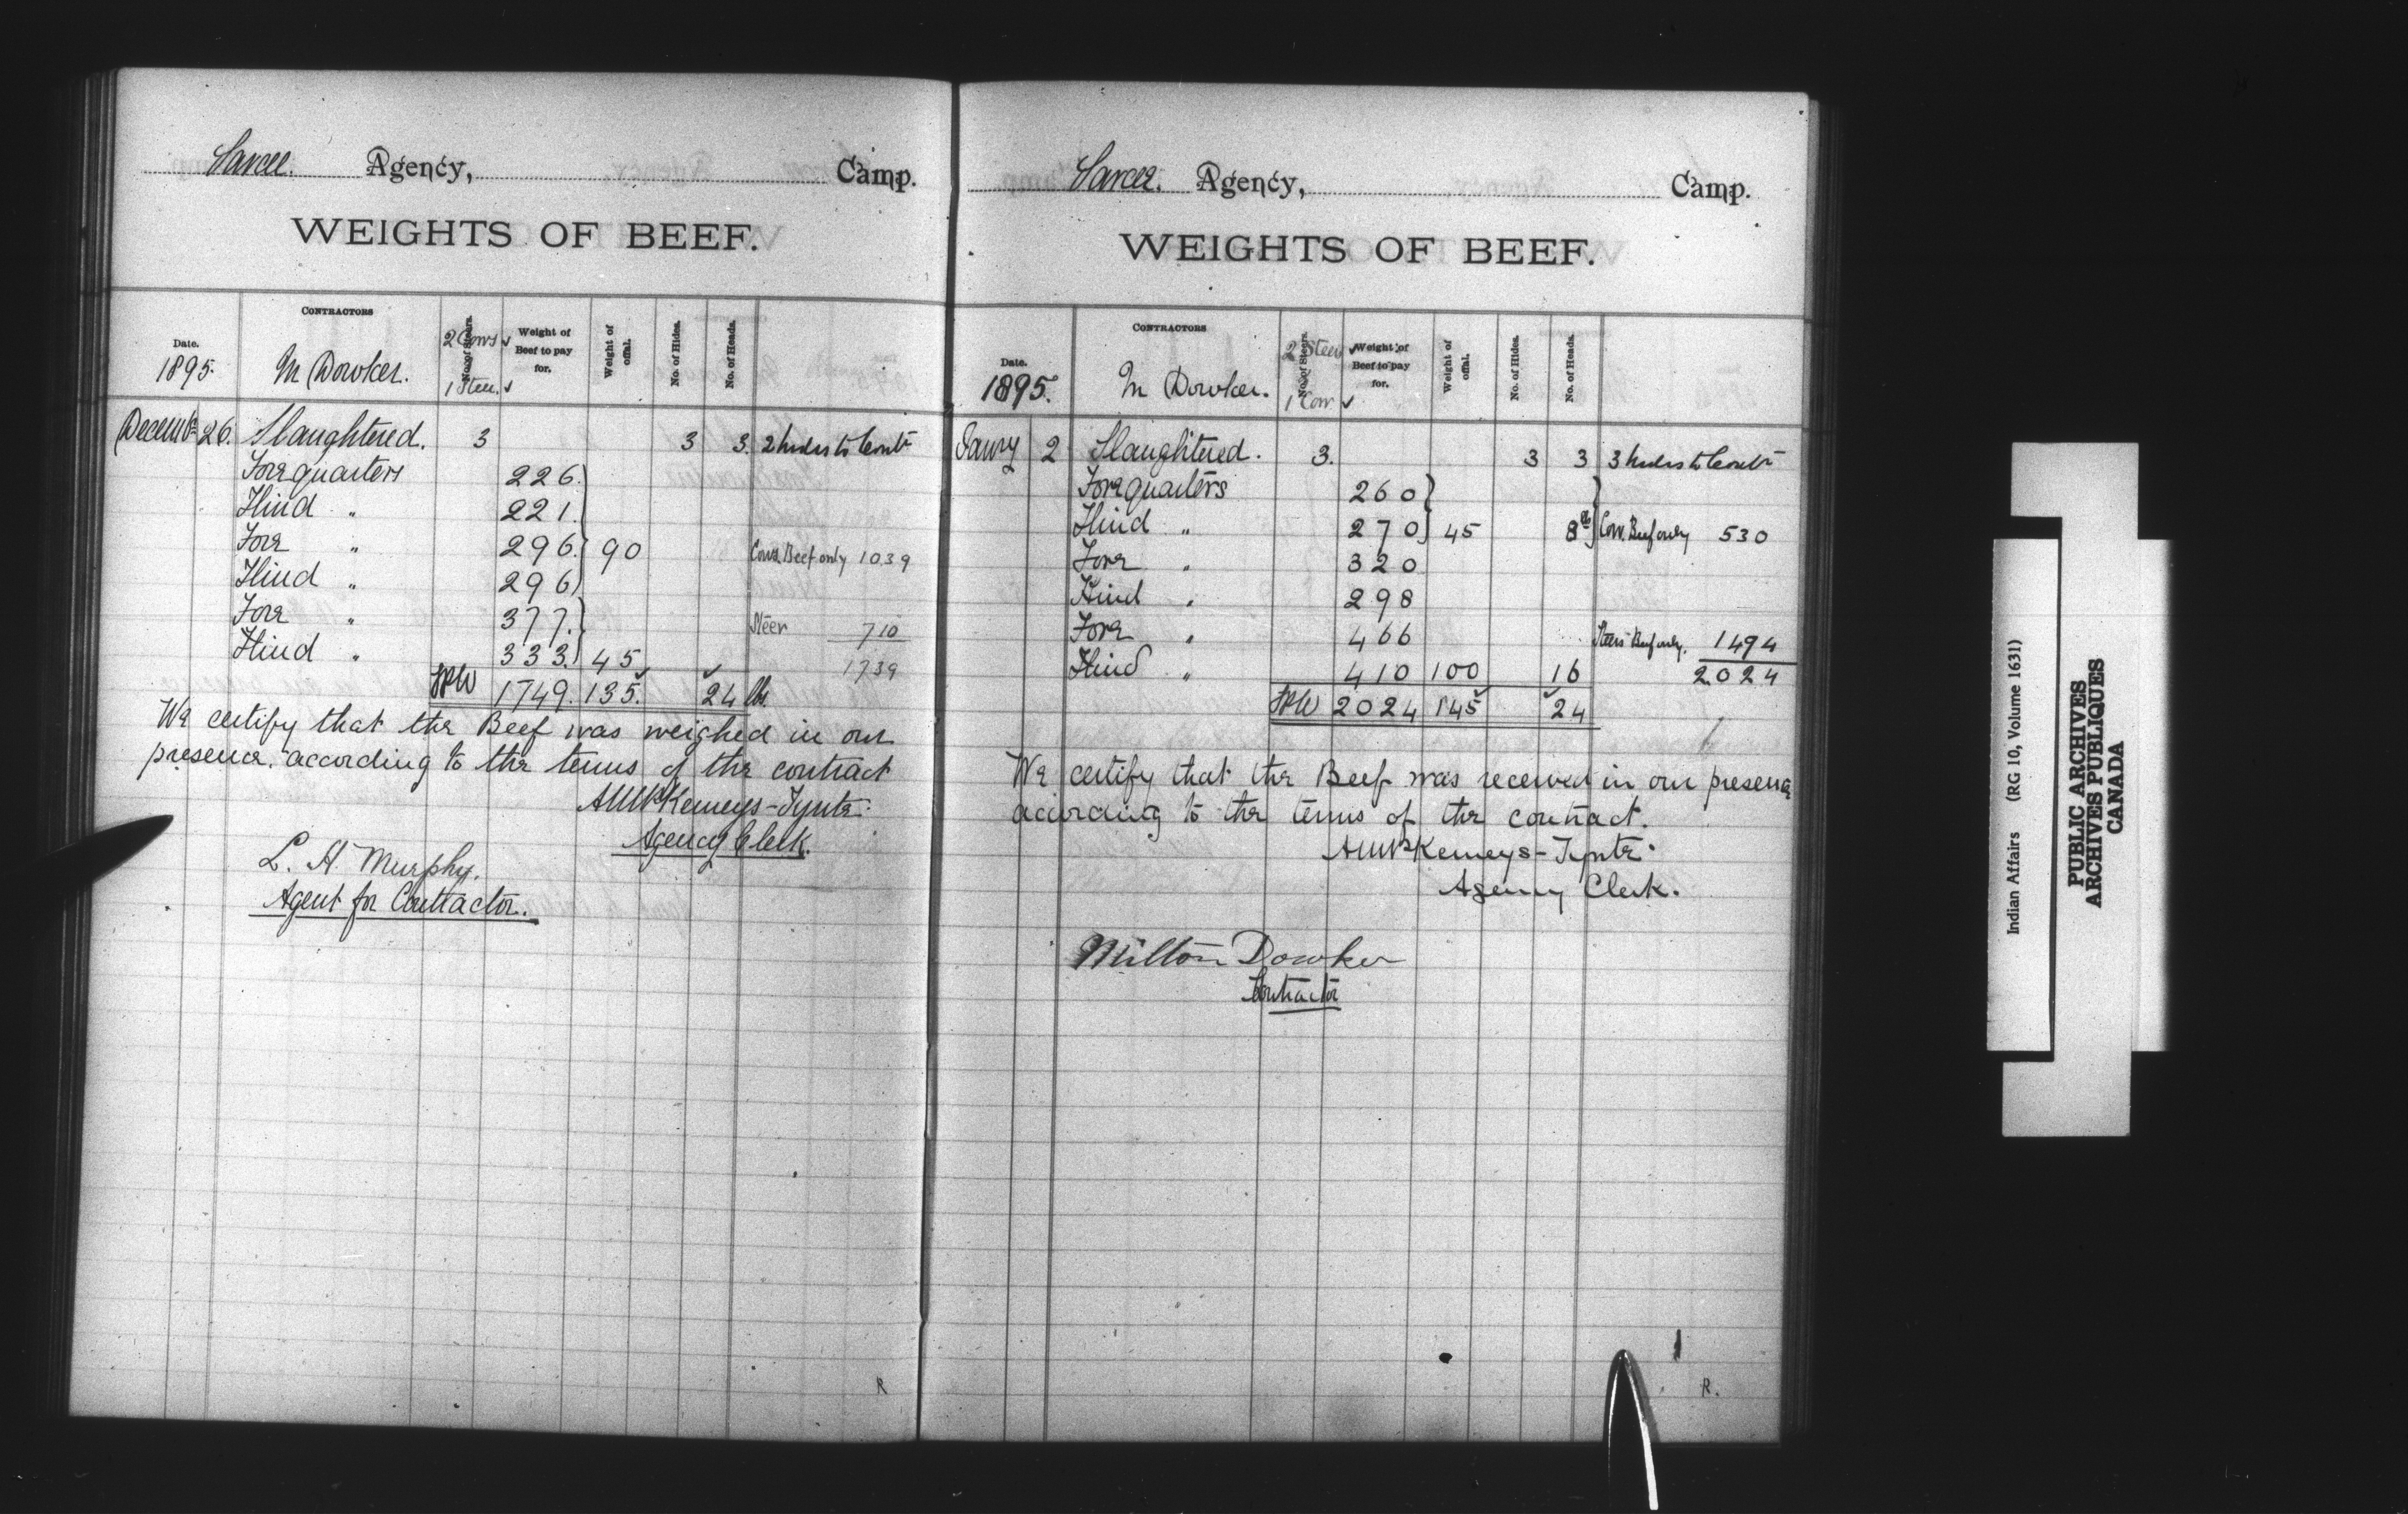 Sarcee. Agency, Camp.
WEIGHTS OF BEEF.
Date. CONTRACTORS No. of Steers. Weight of Beef to pay for. Weight of offal. No. of Hides. No. of Heads.
2 Cows ✓
1895. M Dowker.
1 Steer. ✓
26. Slaughtered. 3 3 3. 2 hides to
Forequarters 226.
Hind " 221.
Fore " 296. 90 Cows Beef only 1039
Hind " 296
Fore " 377. Steer 710
Hind " 333. 45 1739
1749. 135. 24 lbs.
We certify that the Beef was weighed in our
presence. according to the terms of the contract
Kemeys-Tynte.
Agency Clerk.
L. H. Murphy.
Agent for Contractor.
R
Sarcee. Agency, Camp.
WEIGHTS OF BEEF.
Date. CONTRACTORS No. of Steers. Weight of Beef to pay for. Weight of offal. No. of Hides. No. of Heads.
2 Steers ✓
1895. M Dowker.
1 Cow ✓
2 Slaughtered. 3. 3 3 3 hides to
Forequarters 260
Hind " 270 45 8 Cow Beef only 530
Fore " 320
Hind " 298
Fore " 466 Steers Beef only. 1494
Hind " 410 100 16 2024
2024 145 24
We certify that the Beef was received in our presence
according to the terms of the contract.
Kemeys-Tynte.
Agency Clerk.
Milton Dowker
Contractor
R.
Indian Affairs (RG 10, Volume 1631)
PUBLIC ARCHIVES
ARCHIVES PUBLIQUES
CANADA